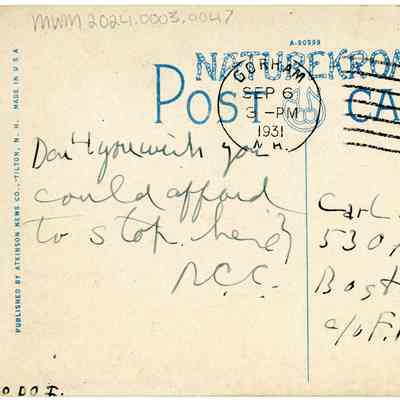 MWM 2024.0003.0047
A-90599
NATUREKRO
POST CA
GORHAM
SEP 6
3-PM
1931
N.H.
Don't you wish you
could afford
to stop here?
Carl
530
Bost
c/o F.
PUBLISHED BY ATKINSON NEWS CO., TILTON, N. H. MADE IN U S A